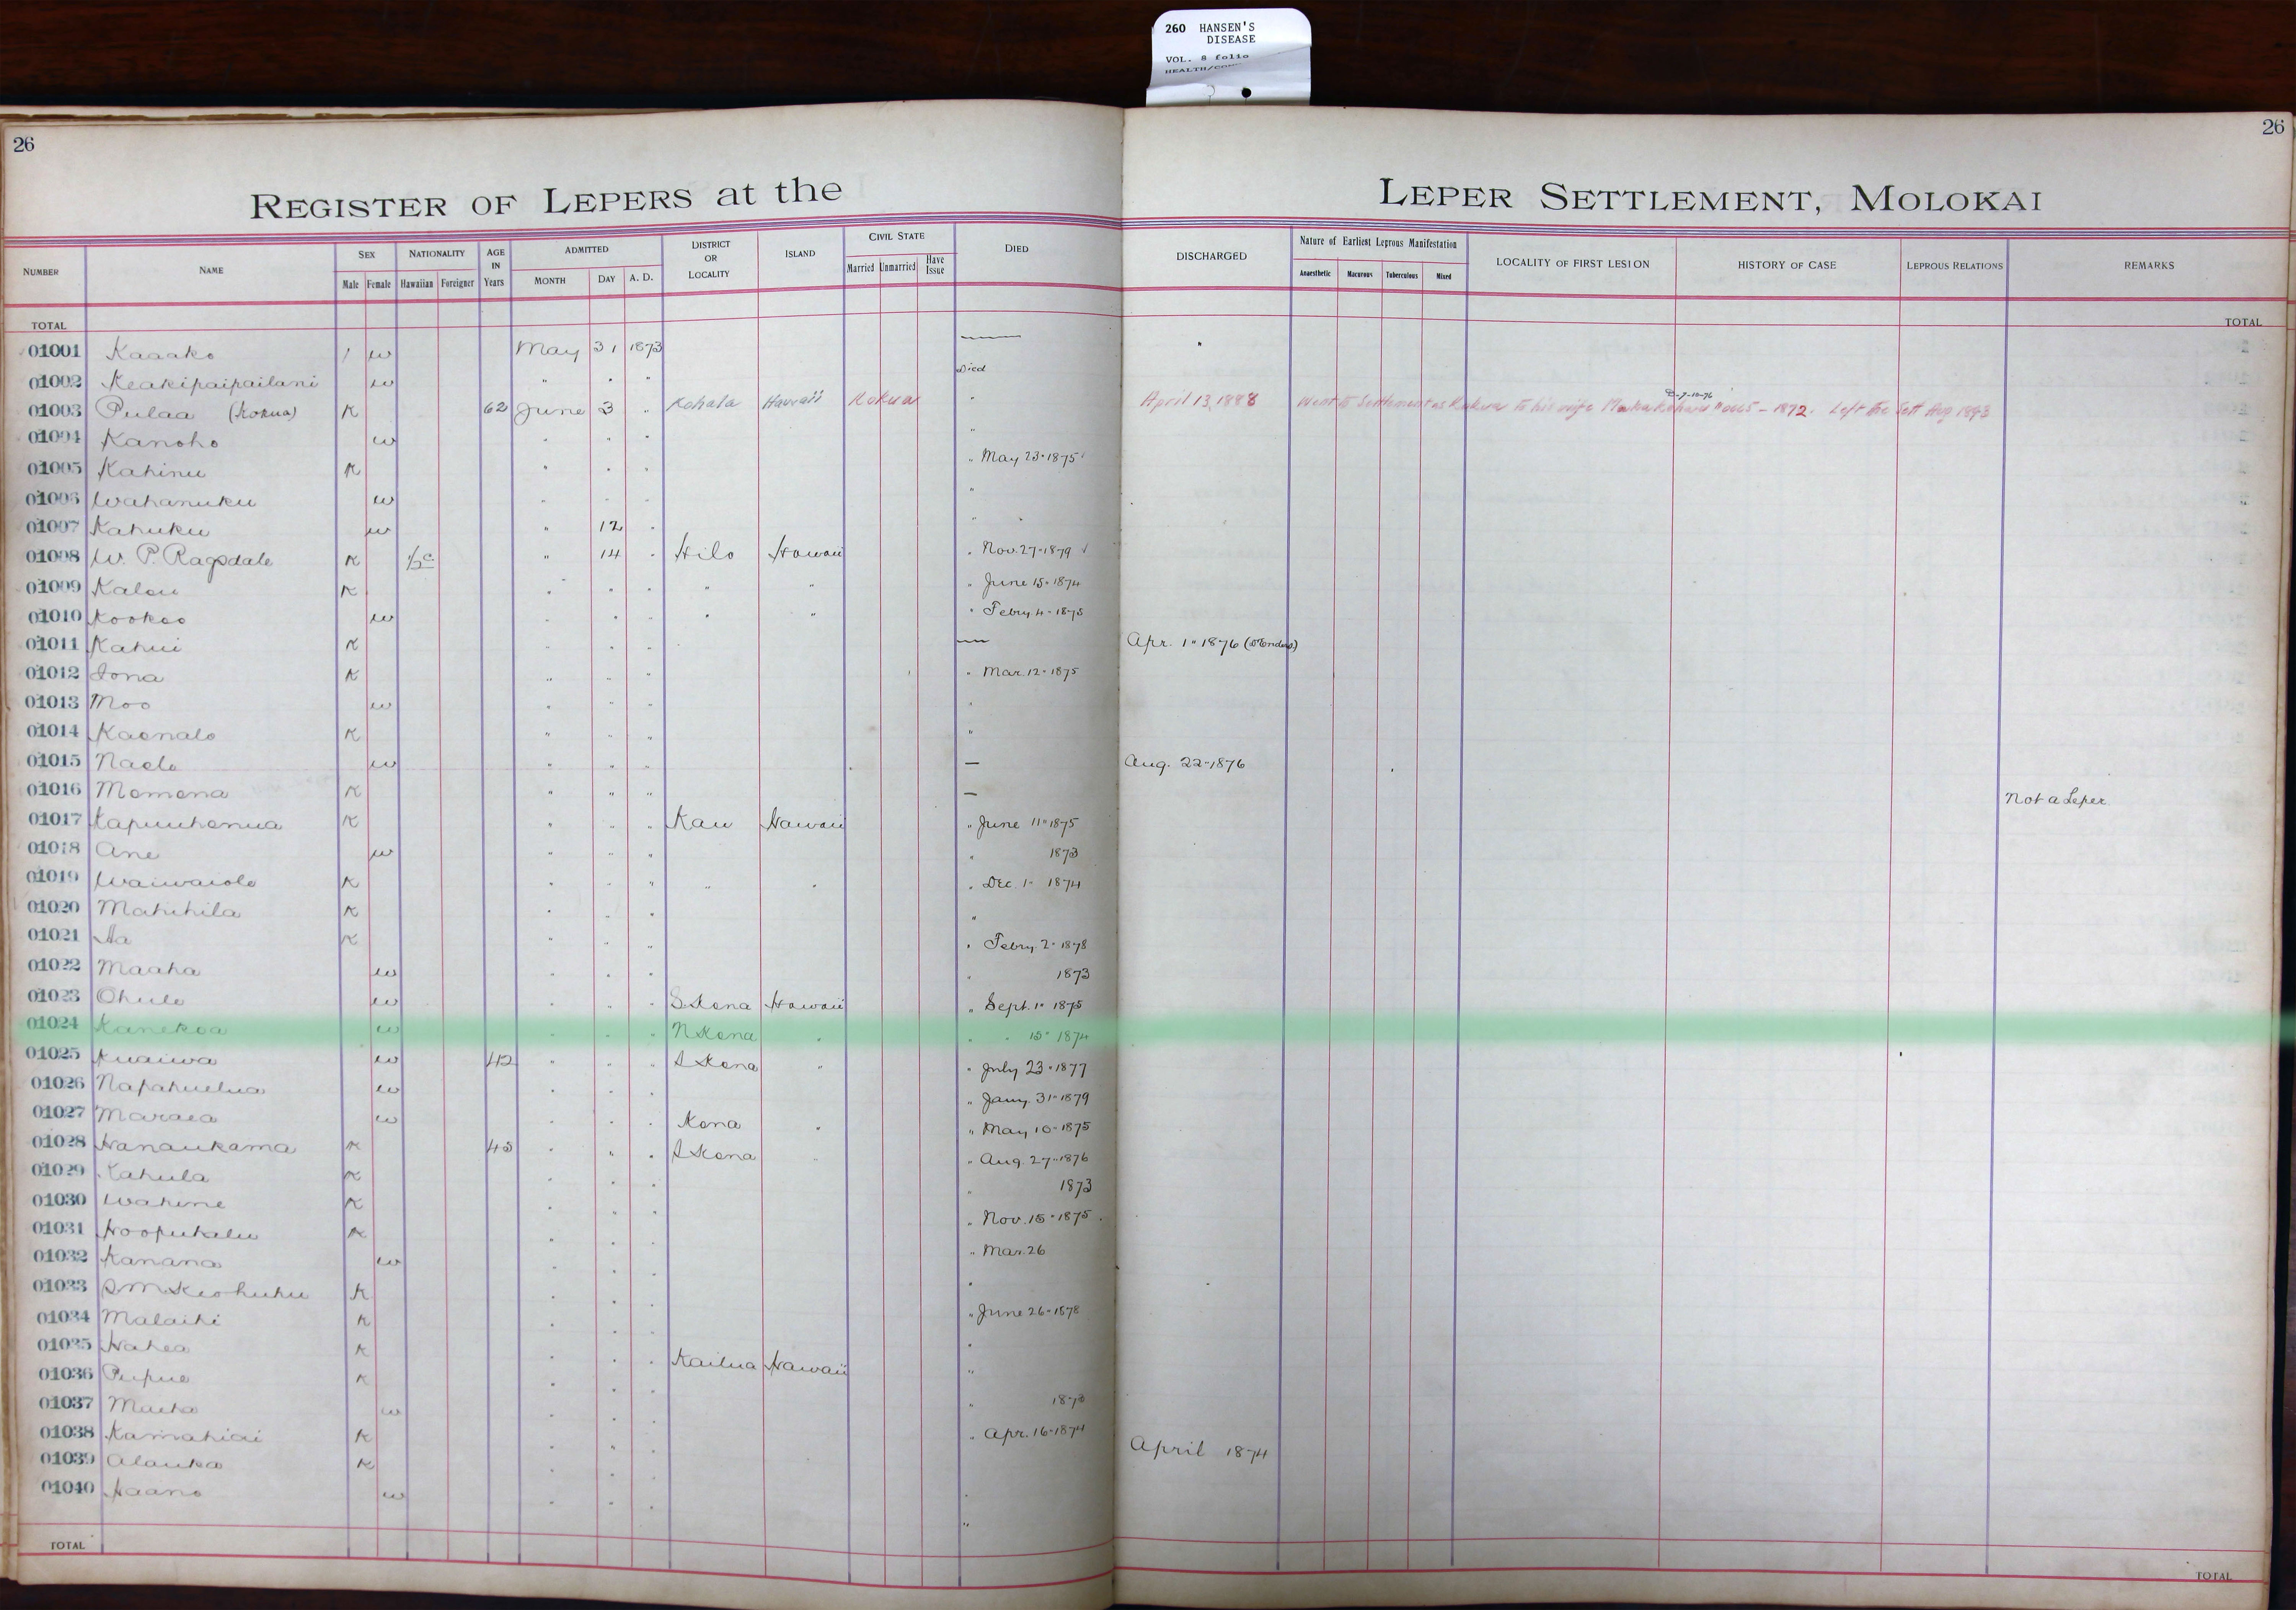 260 HANSEN'S
DISEASE
VOL. 8 folio
HEALTH/COM
26
26
REGISTER OF LEPERS at the LEPER SETTLEMENT, MOLOKAI
NUMBER NAME SEX NATIONALITY AGE IN Years ADMITTED DISTRICT OR LOCALITY ISLAND CIVIL STATE DIED DISCHARGED Nature of Earliest Leprous Manifestation LOCALITY OF FIRST LESION HISTORY OF CASE LEPROUS RELATIONS REMARKS
Male Female Hawaiian Foreigner MONTH DAY A. D. Married Unmarried Have Issue Anaesthetic Macurous Tuberculous Mixed
TOTAL TOTAL
01001 Kaaako / w May 31 1873 — "
01002 Keakipaipailani w " " " Died
01003 Pulaa (Kokua) K 62 June 3 " Kohala Hawaii Kokua " April 13, 1888 Went to Settlement as Kokua to his wife 1872. Left the Sett Aug 1893
01004 Kanoho w " " " "
01005 Kahinu K " " " " May 23" 1875
01006 Wahanuku w " " " "
01007 Kahuku w " 12 " "
01008 W. P. Ragsdale K 1/2 c " 14 " Hilo Hawaii " Nov. 27" 1879
01009 Kalou K " " " " " " June 15" 1874
01010 Kookoo w " " " " " " Febry 4" 1875
01011 Kahui K " " " — Apr. 1" 1876
01012 Iona K " " " " Mar. 12" 1875
01013 Moo w " " " "
01014 Kaonalo K " " " "
01015 Naolo w " " " — Aug. 22" 1876
01016 Momona K " " " — Not a Leper
01017 Kapuuhonua K " " " Kau Hawaii " June 11" 1875
01018 Ane w " " " " 1873
01019 Waiwaiole K " " " " " " Dec. 1" 1874
01020 Mahihila K " " " "
01021 Aa K " " " " Febry. 2" 1878
01022 Maaha w " " " " 1873
01023 Ohule w " " " S Kona Hawaii " Sept. 1" 1875
01024 Kanekoa w " " " N Kona " " " 15" 1874
01025 Kuaiwa w 42 " " " S Kona " " July 23" 1877
01026 Napahuelua w " " " " Jany. 31" 1879
01027 Maraea w " " " Kona " " May 10" 1875
01028 Hanaukama K 43 " " " S Kona " " Aug. 27" 1876
01029 Kahula K " " " " 1873
01030 Wahine K " " " " Nov. 15" 1875
01031 Hoopukalu K " " " " Mar. 26
01032 Kanana w " " " "
01033 S M Keohuhu K " " " " June 26" 1878
01034 Malaihi K " " " "
01035 Hahea K " " " Kailua Hawaii "
01036 Pupue K " " " " 1873
01037 Maeha w " " " " Apr. 16" 1874
01038 Kamahiai K " " " April 1874
01039 Alauka K " " " "
01040 Haano w " " " "
TOTAL TOTAL